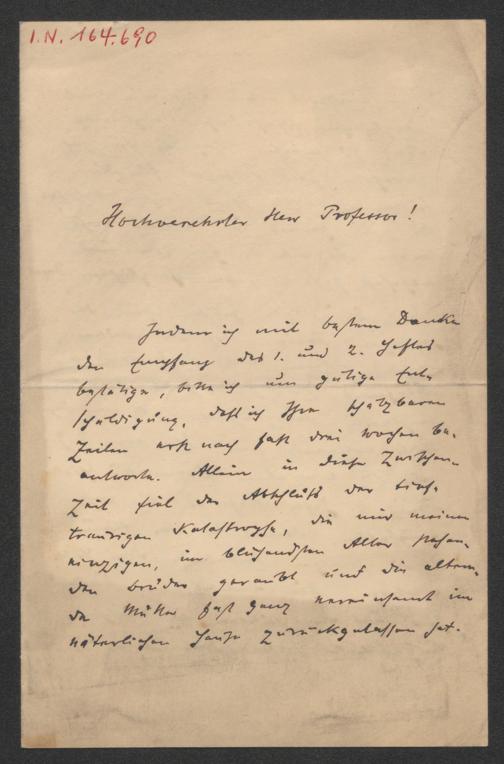 I.N. 164.690
Hochverehrter Herr Professor!
Indem ich mit bestem Danke
den Empfang des 1. und 2. Heftes
bestätige, bitte ich um gütige Ent-
schuldigung, daß ich Ihre schätzbaren
Zeilen erst nach fast drei Wochen be-
antworte. Allein in diese Zwischen-
zeit fiel der Abschluß der tief-
traurigen Katastrophe, die mir meinen
einzigen, im blühendsten Alter stehen-
den Bruder geraubt und die altern-
de Mutter fast ganz vereinsamt im
väterlichen Hause zurückgelassen hat.